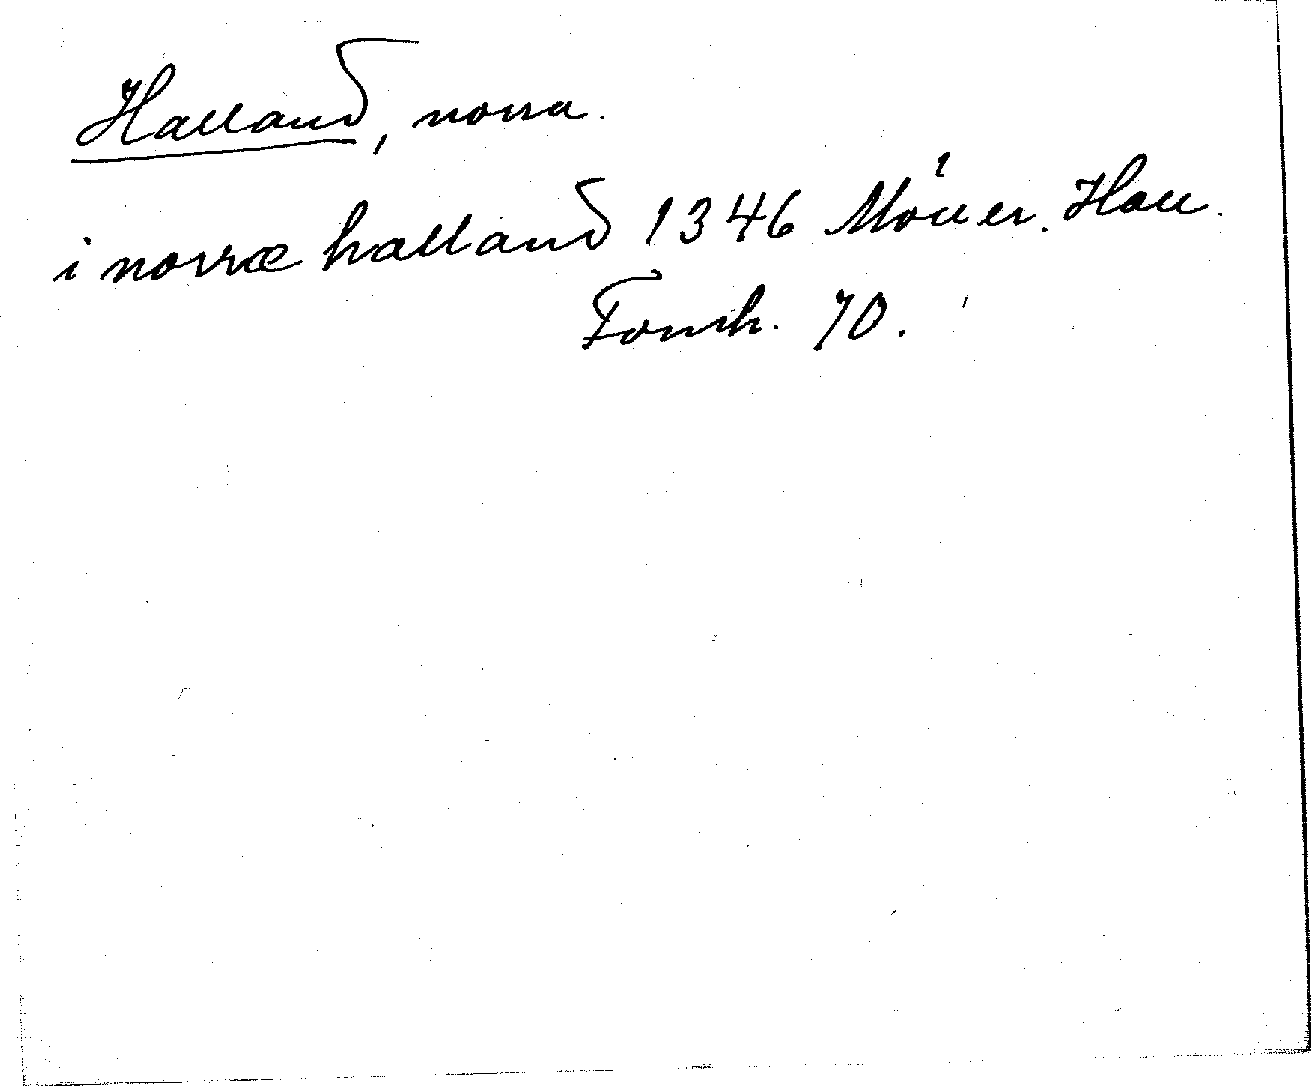 Halland, norra.
i norræ halland 1346 Möller. Hall.
Fornh. 70.